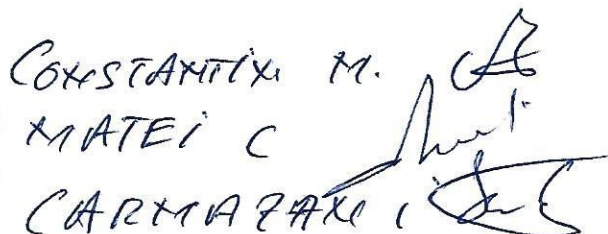 CONSTANTIN M.
MATEI C
CARMAZAN I